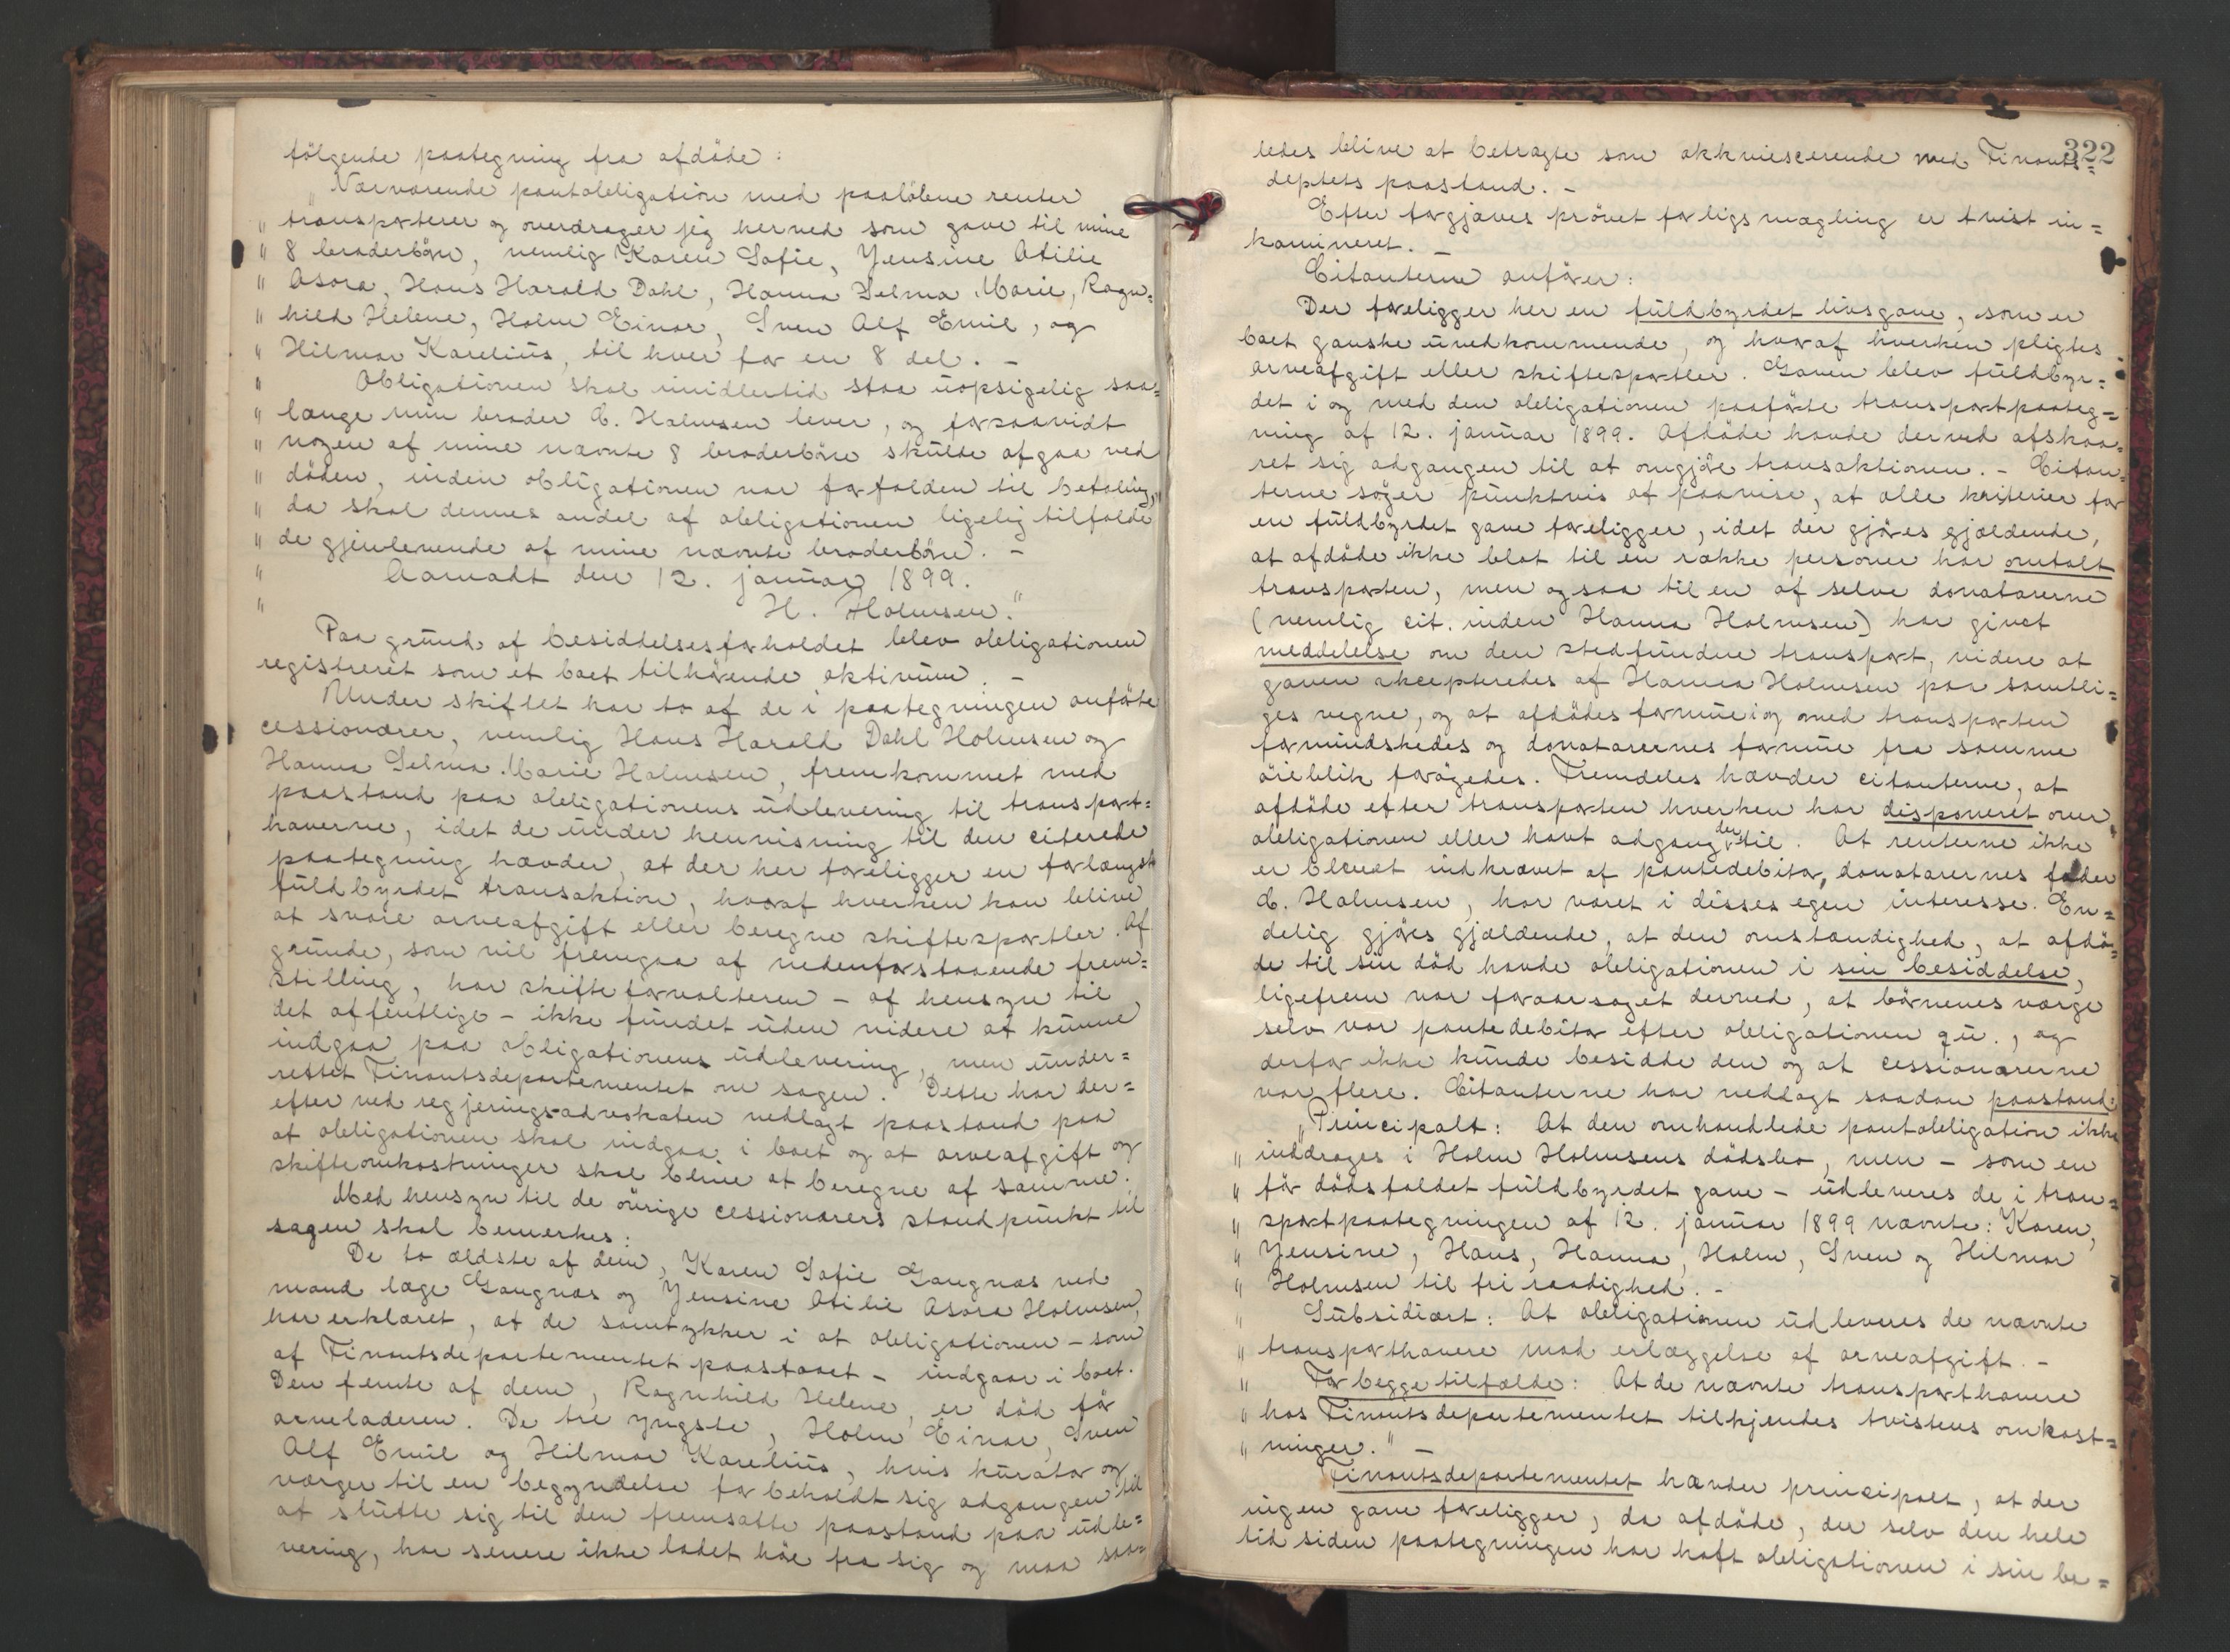 følgende paategning fra afdøde:
„Nærværende pantobligation med paaløbne renter
" transporterer og overdrager jeg herved som gave til mine
" 8 broderbørn, nemlig Karen Sofie, Jensine Otilie
" Asora, Hans Harald Dahl, Hanna Selma Marie, Ragn=
" hild Helene, Holm Einar, Sven Alf Emil, og
" Hilmar Karelius, til hver for en 8 del. –
" Obligationen skal imidlertid staa uopsigelig saa=
" længe min broder C. Holmsen lever, og forsaavidt
" nogen af mine nævnte 8 broderbørn skulde afgaa ved
" døden, inden obligationen var forfalden til betaling,
" da skal dennes andel af obligationen ligelig tilfalde
" de gjenlevende af mine nævnte broderbørn. –
" Aarnadt den 12. januar 1899.
" H. Holmsen."
Paa grund af besiddelsesforholdet blev obligationen
registreret som et boet tilhørende aktivum. –
Under skiftet har to af de i paategningen anførte
cessionærer, nemlig Hans Harald Dahl Holmsen og
Hanna Selma Marie Holmsen, fremkommet med
paastand paa obligationens udlevering til transport=
haverne, idet de under henvisning til den citerede
paategning hævder, at der her foreligger en forlængst
fuldbyrdet transaktion, hvoraf hverken kan blive
at svare arveafgift eller beregne skiftesportler. Af
grunde, som vil fremgaa af nedenforstaaende frem=
stilling, har skifteforvalteren – af hensyn til
det offentlige – ikke fundet uden videre at kunne
indgaa paa obligationens udlevering, men under=
rettet Finantsdepartementet om sagen. Dette har der=
efter ved regjeringsadvokaten nedlagt paastand paa
at obligationen skal indgaa i boet og at arveafgift og
skifteomkostninger skal blive at beregne af samme.
Med hensyn til de øvrige cessionærers standpunkt til
sagen skal bemerkes:
De to ældste af dem, Karen Sofie Gangnæs ved
mand læge Gangnæs og Jensine Otilie Asora Holmsen,
har erklæret, at de samtykker i at obligationen – som
af Finantsdepartementet paastaaet – indgaar i boet.
Den femte af dem, Ragnhild Helene, er død før
arveladeren. De tre yngste, Holm Einar, Sven
Alf Emil og Hilmar Karelius, hvis kurator og
værger til en begyndelse forbeholdt sig adgangen til
at slutte sig til den fremsatte paastand paa udle=
vering, har senere ikke ladet høre fra sig og maa saa=
322
ledes blive at betragte som akkviescerende med Finants=
deptets paastand. –
Efter forgjæves prøvet forligsmægling er tvist in=
kamineret. –
Citanterne anfører:
Der foreligger her en fuldbyrdet livsgave, som er
boet ganske uvedkommende, og hvoraf hverken pligtes
arveafgift eller skiftesportler. Gaven blev fuldbyr=
det i og med den obligationen paaførte transportpaateg=
ning af 12. januar 1899. Afdøde havde derved afskaa=
ret sig adgangen til at omgjøre transaktionen. – Citan=
terne søger punktvis at paavise, at alle kriterier for
en fuldbyrdet gave foreligger, idet der gjøres gjældende,
at afdøde ikke blot til en række personer har omtalt
transporten, men ogsaa til en af selve donatarerne
(nemlig cit. inden Hanna Holmsen) har givet
meddelelse om den stedfundne transport, videre at
gaven akcepteredes af Hanna Holmsen paa samtli=
ges vegne, og at afdødes formue i og med transporten
formindskedes og donatarernes formue fra samme
øieblik forøgedes. Fremdeles hævder citanterne, at
afdøde efter transporten hverken har disponeret over
obligationen eller havt adgang dertil. At renterne ikke
er blevet indkrævet af pantedebitor, donatarernes fader
C. Holmsen, har været i disses egen interesse. En=
delig gjøres gjældende, at den omstændighed, at afdø=
de til sin død havde obligationen i sin besiddelse,
ligefrem var foraarsaget derved, at børnenes værge
selv var pantedebitor efter obligationen qu., og
derfor ikke kunde besidde den og at cessionærerne
var flere. Citanterne har nedlagt saadan paastand:
„Principalt: At den omhandlede pantobligation ikke
" inddrages i Holm Holmsens dødsbo, men – som en
" før dødsfaldet fuldbyrdet gave – udleveres de i tran=
" sportpaategningen af 12. januar 1899 nævnte: Karen,
" Jensine, Hans, Hanna, Holm, Sven og Hilmar
" Holmsen til fri raadighed. –
" Subsidiært: At obligationen udleveres de nævnte
" transporthavere mod erlæggelse af arveafgift. –
" For begge tilfælde: At de nævnte transporthavere
" hos Finantsdepartementet tilkjendes tvistens omkost=
" ninger." –
Finantsdepartementet hævder principalt, at der
ingen gave foreligger, da afdøde, der selv den hele
tid siden paategningen har haft obligationen i sin be=